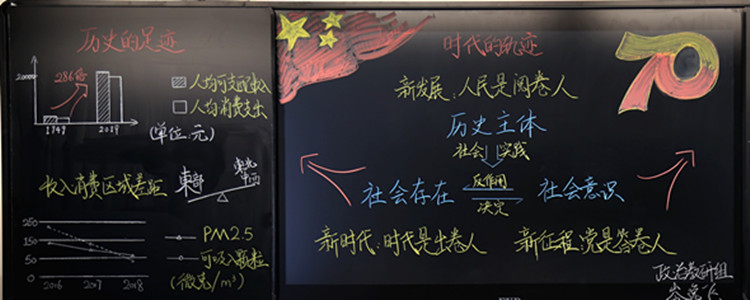 历史的足迹
20000
286倍
1949
2019
人均可支配收入
人均消费支出
(单位:元)
收入消费区域差距
東部
250
150
100
50
0
2016
2017
2018
PM2.5
可吸入颗粒
(微克/m³)
时代的轨迹
70
新发展:人民是阅卷人
历史主体
社会 实践
社会存在
反作用
决定
社会意识
新时代:时代是出卷人
新征程:党是答卷人
政治教研组